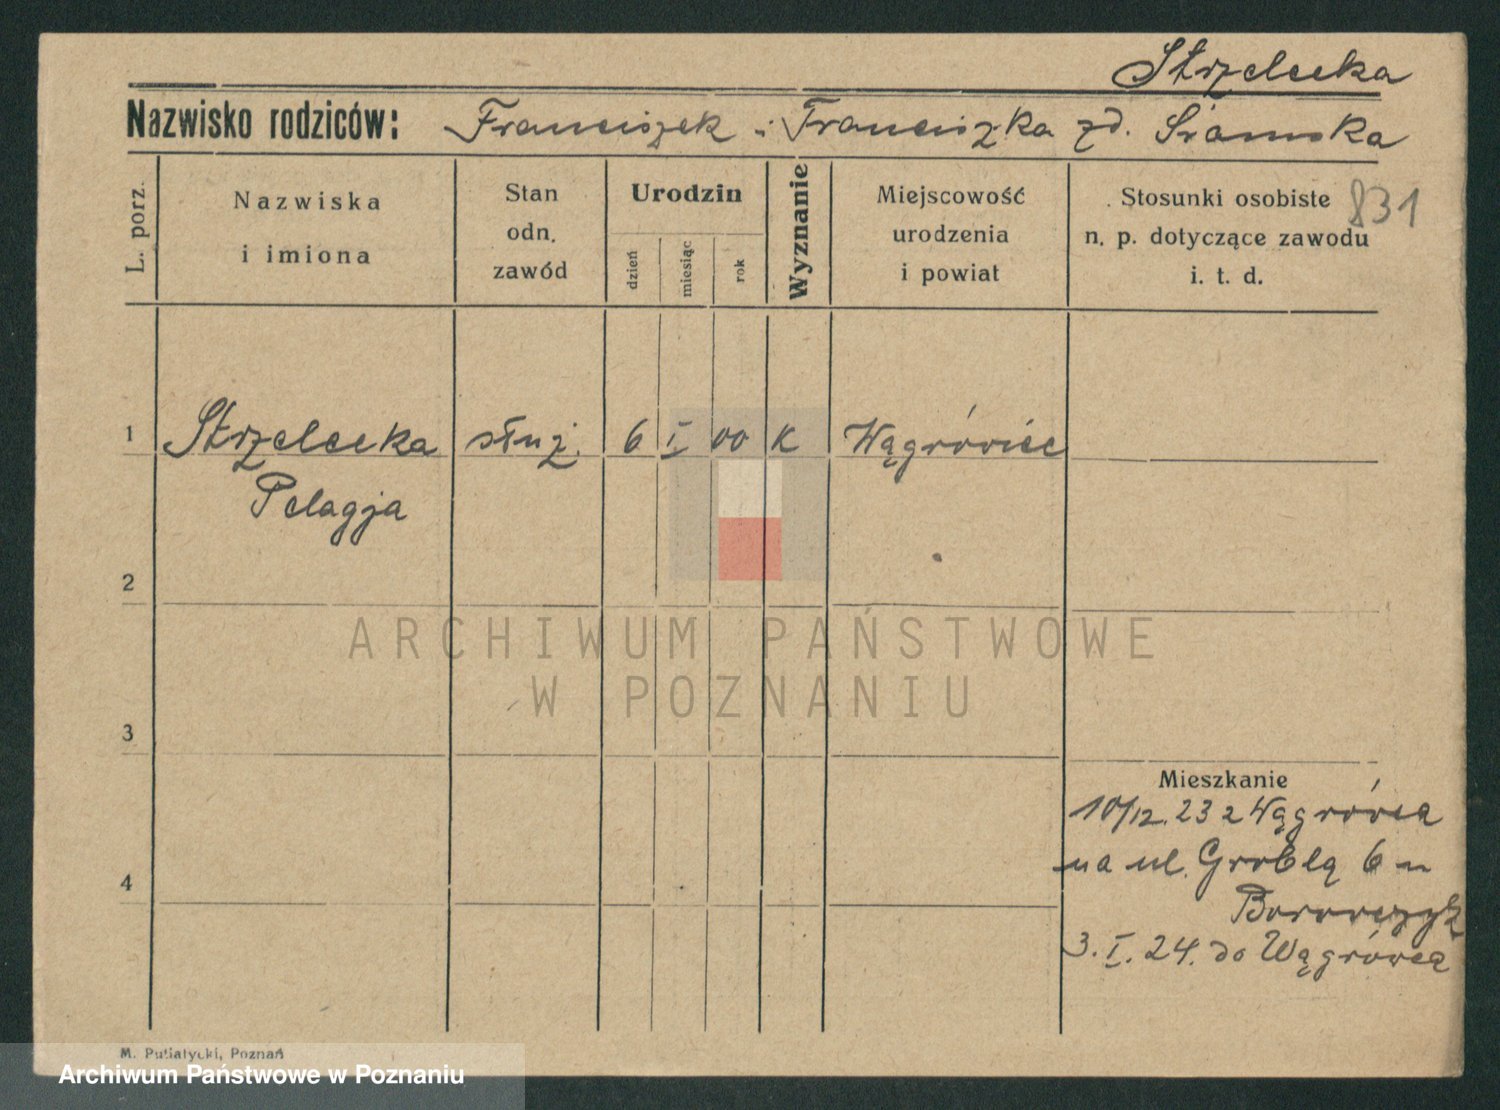 Strzelecka
Nazwisko rodziców: Franciszek i Franciszka zd. Sramska
L. porz.
Nazwiska
i imiona
Stan
odn.
zawód
Urodzin
dzień
miesiąc
rok
Wyznanie
Miejscowość
urodzenia
i powiat
Stosunki osobiste
n. p. dotyczące zawodu
i. t. d.
831
1 Strzelecka służ. 6 I. 00 K Wągrówiec
Pelagja
2
3
4
Mieszkanie
10/12. 23 z Wągrówca
na ul. Groblą 6 u
Borowczyk
3. I. 24. do Wągrówca
M. Putiatycki, Poznań
ARCHIWUM PAŃSTWOWE
W POZNANIU
Archiwum Państwowe w Poznaniu